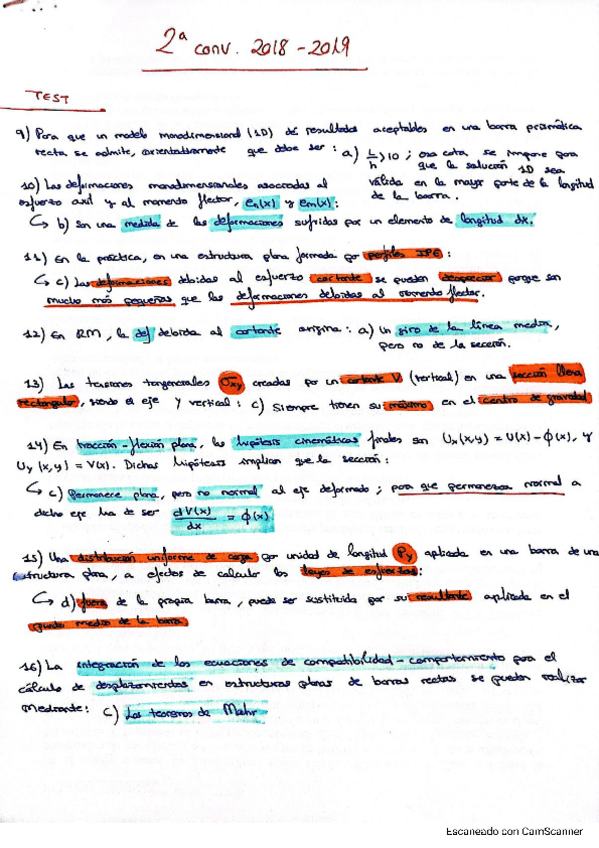 2ª conv. 2018-2019
TEST
9) Para que un modelo monodimensional (1D) dé resultados aceptables en una barra prismática
recta se admite, orientativamente que debe ser: a) L/h > 10; esa cota se impone para
que la solución 1D sea
10) Las deformaciones monodimensionales asociadas al
válida en la mayor parte de la longitud
esfuerzo axil y al momento flector, en(x) y em(x):
de la barra.
↳ b) Son una medida de las deformaciones sufridas por un elemento de longitud dx.
11) En la práctica, en una estructura plana formada por perfiles IPE:
↳ c) Las deformaciones debidas al esfuerzo cortante se pueden despreciar porque son
mucho más pequeñas que las deformaciones debidas al momento flector.
12) En RM, la def debida al cortante origina: a) Un giro de la línea media,
pero no de la sección.
13) Las tensiones tangenciales σxy creadas por un cortante V (vertical) en una sección llena
rectangular, siendo el eje Y vertical: c) Siempre tienen su máximo en el centro de gravedad
14) En tracción-flexión plana, las hipótesis cinemáticas finales son Ux(x,y) = U(x) - ϕ(x), y
Uy(x,y) = V(x). Dichas hipótesis implican que la sección:
↳ c) Permanece plana, pero no normal al eje deformado; para que permanezca normal a
dicho eje ha de ser dV(x)/dx = ϕ(x)
15) Una distribución uniforme de carga por unidad de longitud Py aplicada en una barra de una
estructura plana, a efectos de calculo los leyes de esfuerzos:
↳ d) fuera de la propia barra, puede ser sustituida por su resultante aplicada en el
punto medio de la barra
16) La integración de las ecuaciones de compatibilidad-comportamiento para el
cálculo de desplazamientos en estructuras planas de barras rectas se pueden realizar
mediante: c) Los teoremas de Mohr
Escaneado con CamScanner